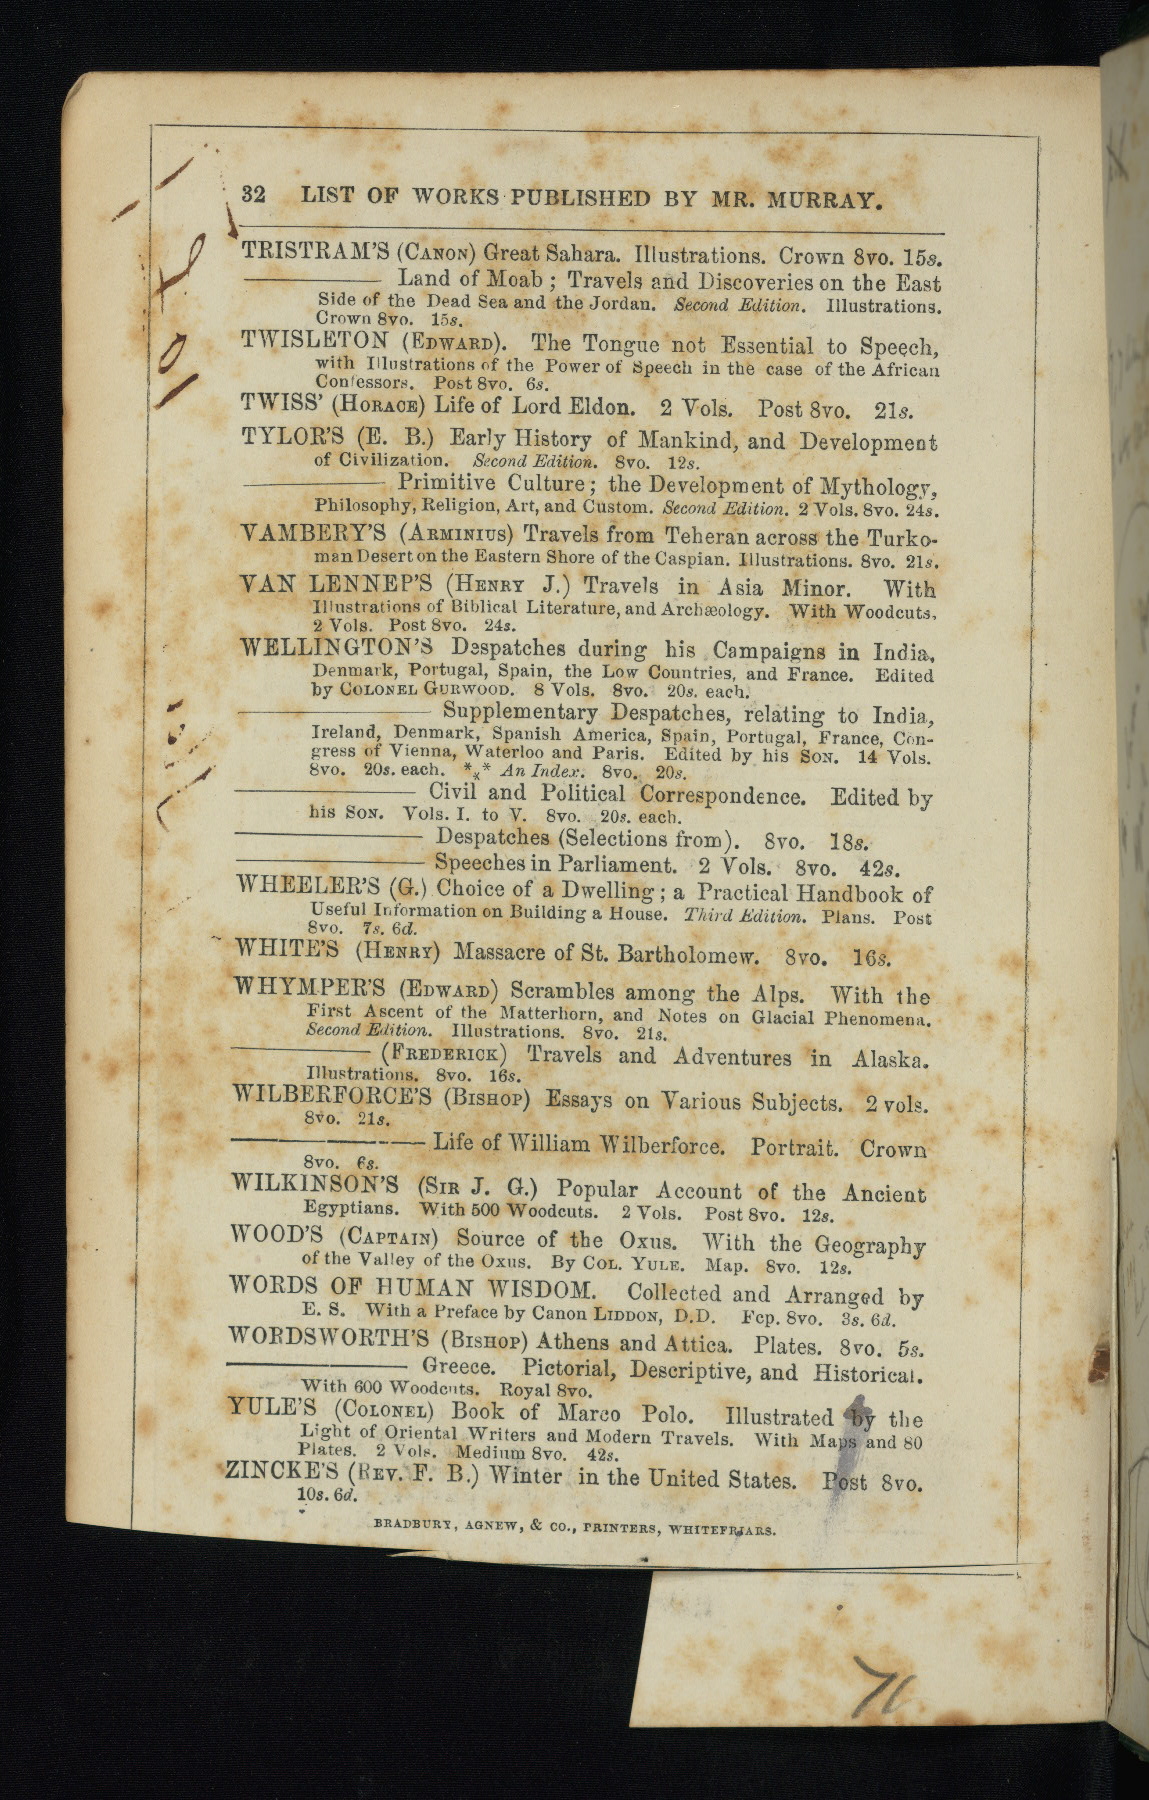 32 LIST OF WORKS PUBLISHED BY MR. MURRAY.
TRISTRAM'S (CANON) Great Sahara. Illustrations. Crown 8vo. 15s.
——— Land of Moab; Travels and Discoveries on the East
Side of the Dead Sea and the Jordan. Second Edition. Illustrations.
Crown 8vo. 15s.
TWISLETON (EDWARD). The Tongue not Essential to Speech,
with Illustrations of the Power of Speech in the case of the African
Confessors. Post 8vo. 6s.
TWISS' (HORACE) Life of Lord Eldon. 2 Vols. Post 8vo. 21s.
TYLOR'S (E. B.) Early History of Mankind, and Development
of Civilization. Second Edition. 8vo. 12s.
——— Primitive Culture; the Development of Mythology,
Philosophy, Religion, Art, and Custom. Second Edition. 2 Vols. 8vo. 24s.
VAMBERY'S (ARMINIUS) Travels from Teheran across the Turko-
man Desert on the Eastern Shore of the Caspian. Illustrations. 8vo. 21s.
VAN LENNEP'S (HENRY J.) Travels in Asia Minor. With
Illustrations of Biblical Literature, and Archæology. With Woodcuts.
2 Vols. Post 8vo. 24s.
WELLINGTON'S Despatches during his Campaigns in India,
Denmark, Portugal, Spain, the Low Countries, and France. Edited
by COLONEL GURWOOD. 8 Vols. 8vo. 20s. each.
——— Supplementary Despatches, relating to India,
Ireland, Denmark, Spanish America, Spain, Portugal, France, Con-
gress of Vienna, Waterloo and Paris. Edited by his SON. 14 Vols.
8vo. 20s. each. *** An Index. 8vo. 20s.
——— Civil and Political Correspondence. Edited by
his SON. Vols. I. to V. 8vo. 20s. each.
——— Despatches (Selections from). 8vo. 18s.
——— Speeches in Parliament. 2 Vols. 8vo. 42s.
WHEELER'S (G.) Choice of a Dwelling; a Practical Handbook of
Useful Information on Building a House. Third Edition. Plans. Post
8vo. 7s. 6d.
WHITE'S (HENRY) Massacre of St. Bartholomew. 8vo. 16s.
WHYMPER'S (EDWARD) Scrambles among the Alps. With the
First Ascent of the Matterhorn, and Notes on Glacial Phenomena.
Second Edition. Illustrations. 8vo. 21s.
——— (FREDERICK) Travels and Adventures in Alaska.
Illustrations. 8vo. 16s.
WILBERFORCE'S (BISHOP) Essays on Various Subjects. 2 vols.
8vo. 21s.
——— Life of William Wilberforce. Portrait. Crown
8vo. 6s.
WILKINSON'S (SIR J. G.) Popular Account of the Ancient
Egyptians. With 500 Woodcuts. 2 Vols. Post 8vo. 12s.
WOOD'S (CAPTAIN) Source of the Oxus. With the Geography
of the Valley of the Oxus. By COL. YULE. Map. 8vo. 12s.
WORDS OF HUMAN WISDOM. Collected and Arranged by
E. S. With a Preface by Canon LIDDON, D.D. Fcp. 8vo. 3s. 6d.
WORDSWORTH'S (BISHOP) Athens and Attica. Plates. 8vo. 5s.
——— Greece. Pictorial, Descriptive, and Historical.
With 600 Woodcuts. Royal 8vo.
YULE'S (COLONEL) Book of Marco Polo. Illustrated by the
Light of Oriental Writers and Modern Travels. With Maps and 80
Plates. 2 Vols. Medium 8vo. 42s.
ZINCKE'S (REV. F. B.) Winter in the United States. Post 8vo.
10s. 6d.
BRADBURY, AGNEW, & CO., PRINTERS, WHITEFRIARS.